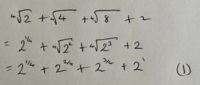 ⁴√2 + ⁴√4 + ⁴√8 + 2
= 2^{1/4} + ⁴√2² + ⁴√2³ + 2
= 2^{1/4} + 2^{2/4} + 2^{3/4} + 2¹ (1)